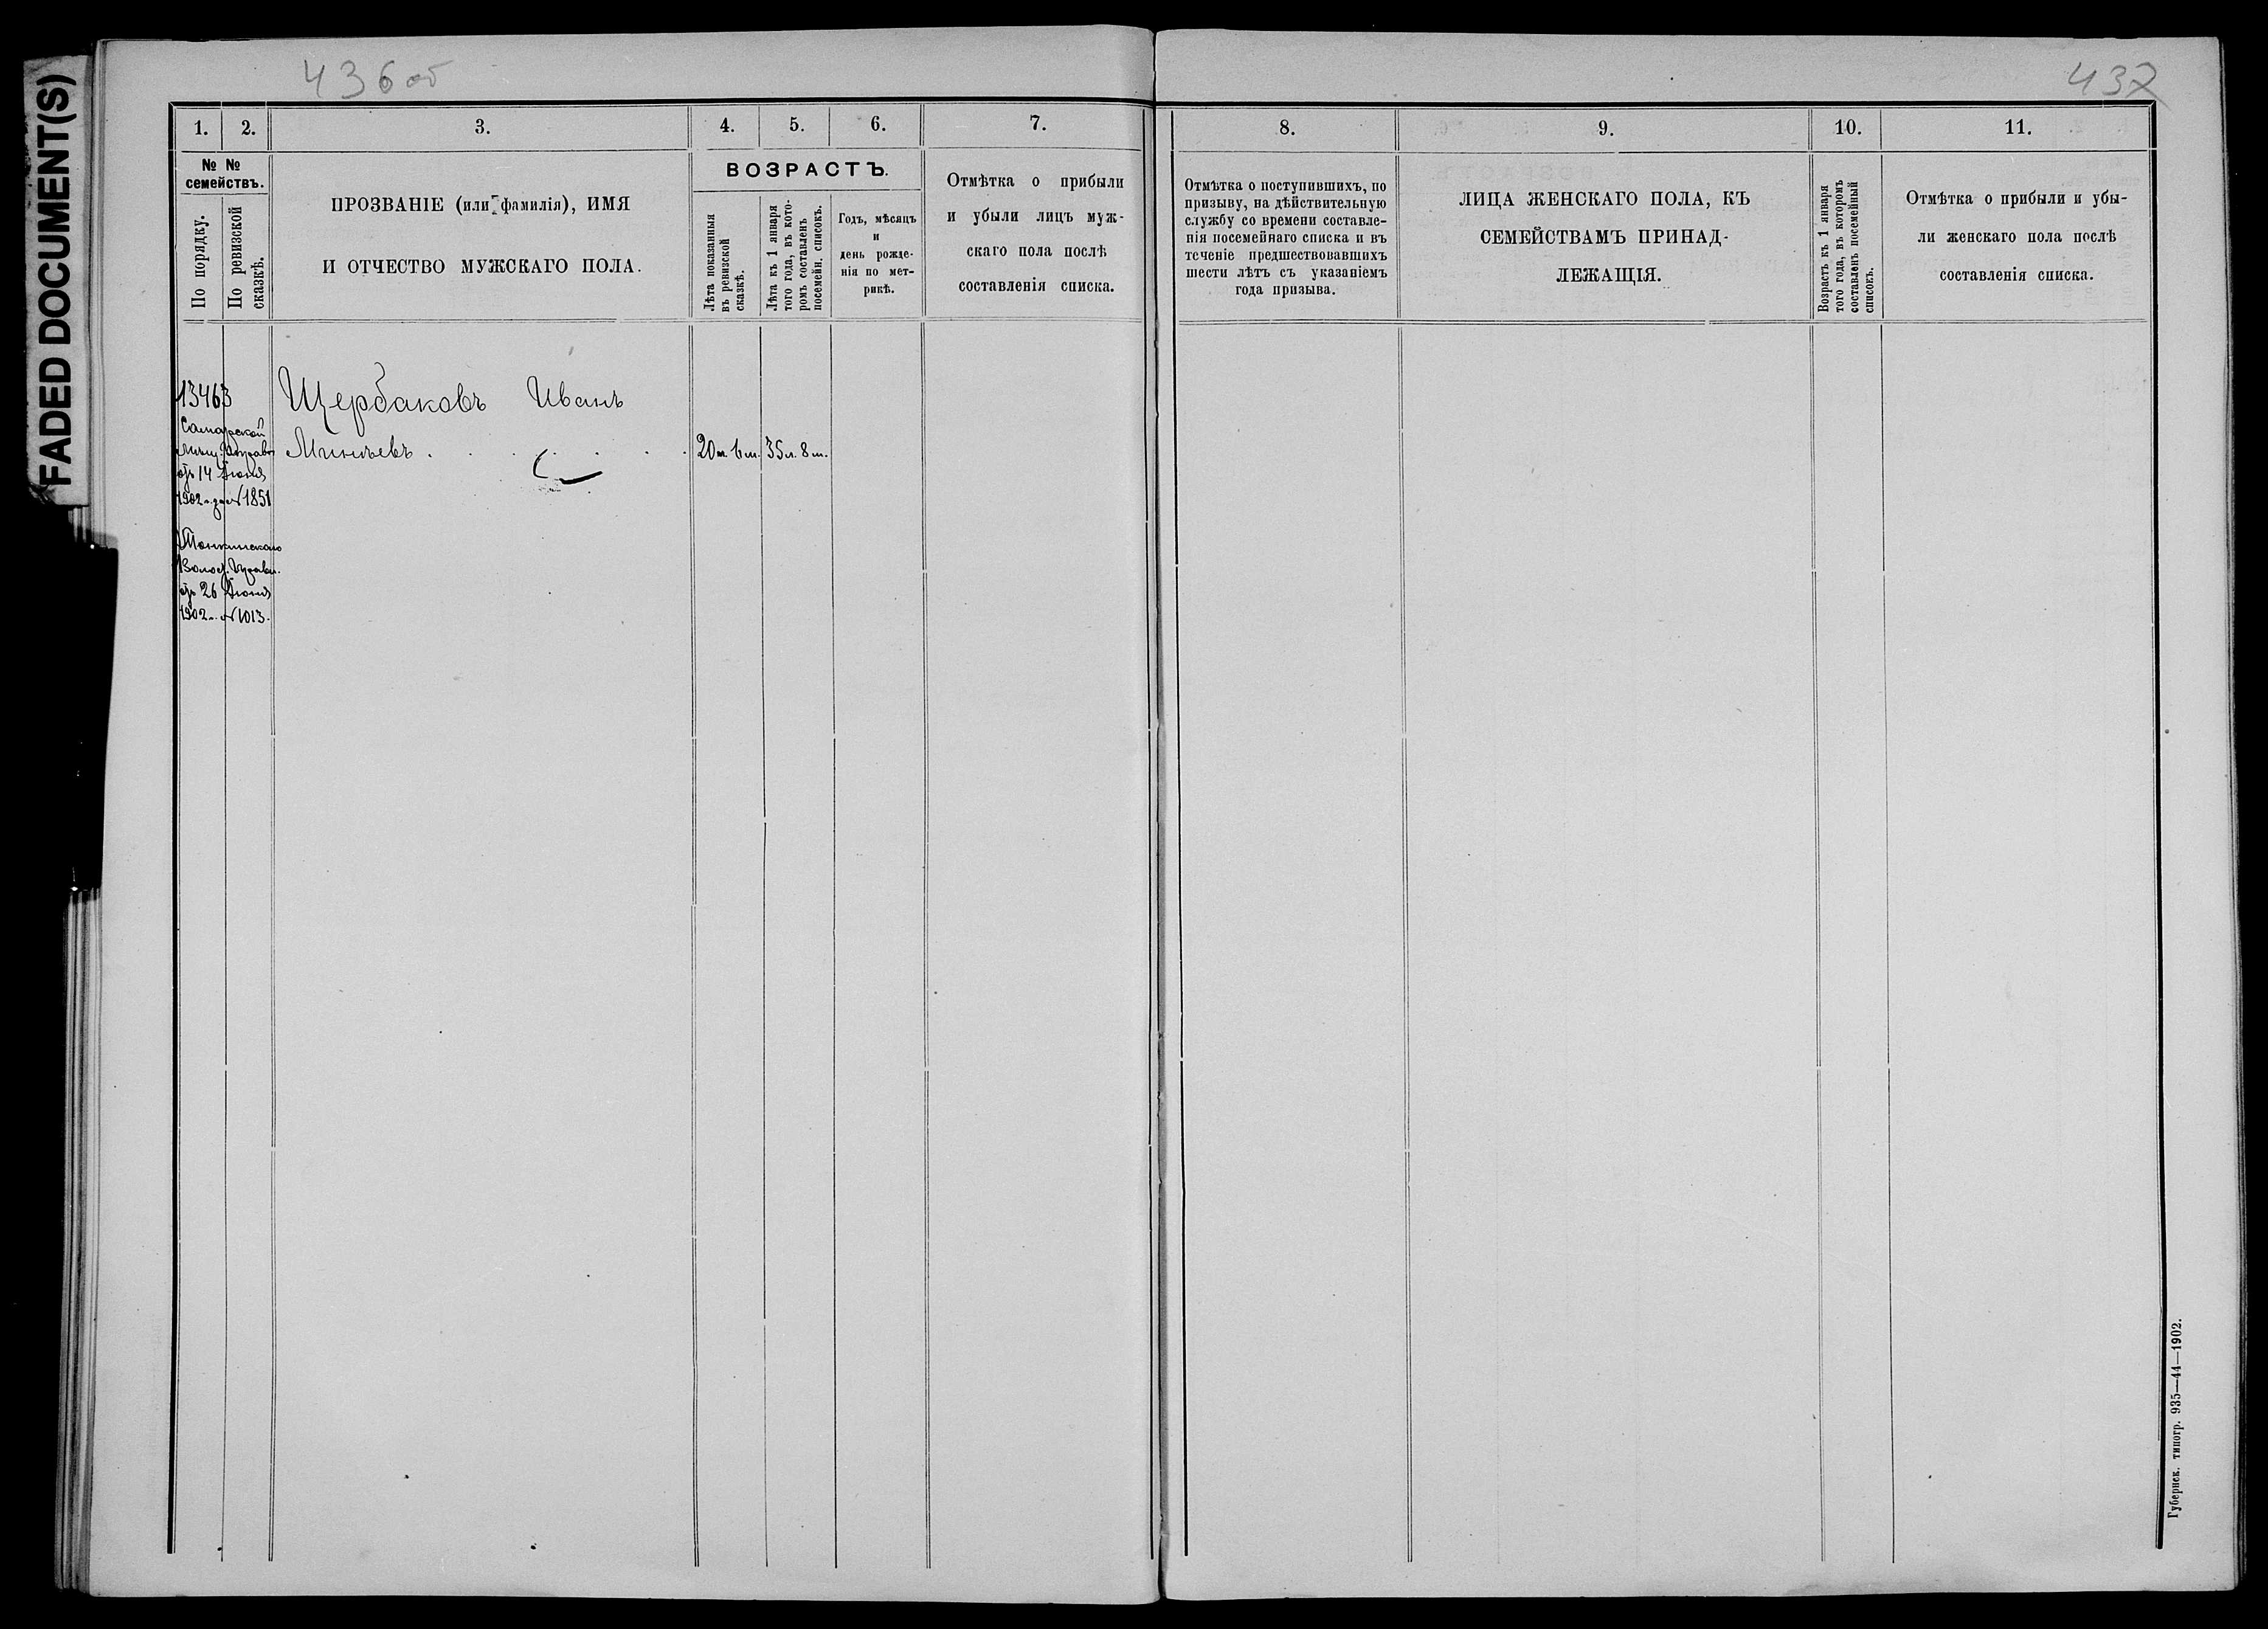 FADED DOCUMENT(S)
436 об
437
1.
2.
3.
4.
5.
6.
7.
8.
9.
10.
11.
№ №
семействъ.
По порядку.
По ревизской
сказкѣ.
ПРОЗВАНІЕ (или фамилія), ИМЯ
И ОТЧЕСТВО МУЖСКАГО ПОЛА.
ВОЗРАСТЪ.
Лѣта показанныя
въ ревизской
сказкѣ.
Лѣта къ 1 января
того года, въ кото-
ромъ составленъ
посемейн. списокъ.
Годъ, мѣсяцъ
и
день рожде-
нія по мет-
рикѣ.
Отмѣтка о прибыли
и убыли лицъ муж-
скаго пола послѣ
составленія списка.
Отмѣтка о поступившихъ, по
призыву, на дѣйствительную
службу со времени составле-
нія посемейнаго списка и въ
теченіе предшествовавшихъ
шести лѣтъ съ указаніемъ
года призыва.
ЛИЦА ЖЕНСКАГО ПОЛА, КЪ
СЕМЕЙСТВАМЪ ПРИНАД-
ЛЕЖАЩІЯ.
Возрастъ къ 1 января
того года, въ которомъ
составленъ посемейный
списокъ.
Отмѣтка о прибыли и убы-
ли женскаго пола послѣ
составленія списка.
13463
Щербаковъ Иванъ
Самарской
Мѣщ. Управы
Минѣевъ
35 л. 8 м.
отъ 14 Іюня
1902 г. за № 1851
Волос. Правл.
отъ 26 Іюня
1902 г. № 1013.
Губернск. типогр. 935—44—1902.